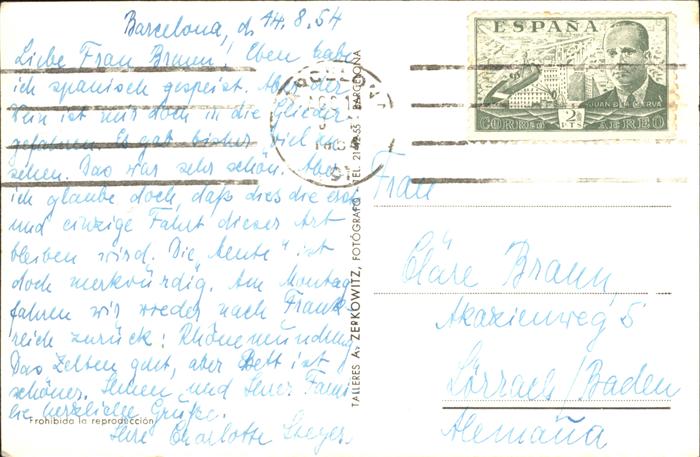 Barcelona, d. 14.8.54
Liebe Frau Braun! Eben habe
ich spanisch gespeist. Aber der
Wein ist mir doch in die Glieder
gefahren. Es gab bisher viel zu
sehen. Das war sehr schön. Aber
ich glaube doch, daß dies die erste
und einzige Fahrt dieser Art
bleiben wird. Die "Leute" ist
doch merkwürdig. Am Montag
fahren wir wieder nach Frank-
reich zurück: Rhônemündung.
Das Zelten geht, aber Bett ist
schöner. Ihnen und Ihrer Fami-
lie herzliche Grüße.
Ihre Charlotte
Prohibida la reproducción
TALLERES A. ZERKOWITZ, FOTÓGRAFO - TEL. - BARCELONA
ESPAÑA
JUAN DE LA CIERVA
2 PTS
CORREO AEREO
Frau
Cläre Braun
Akazienweg 5
Lörrach/Baden
Alemaña